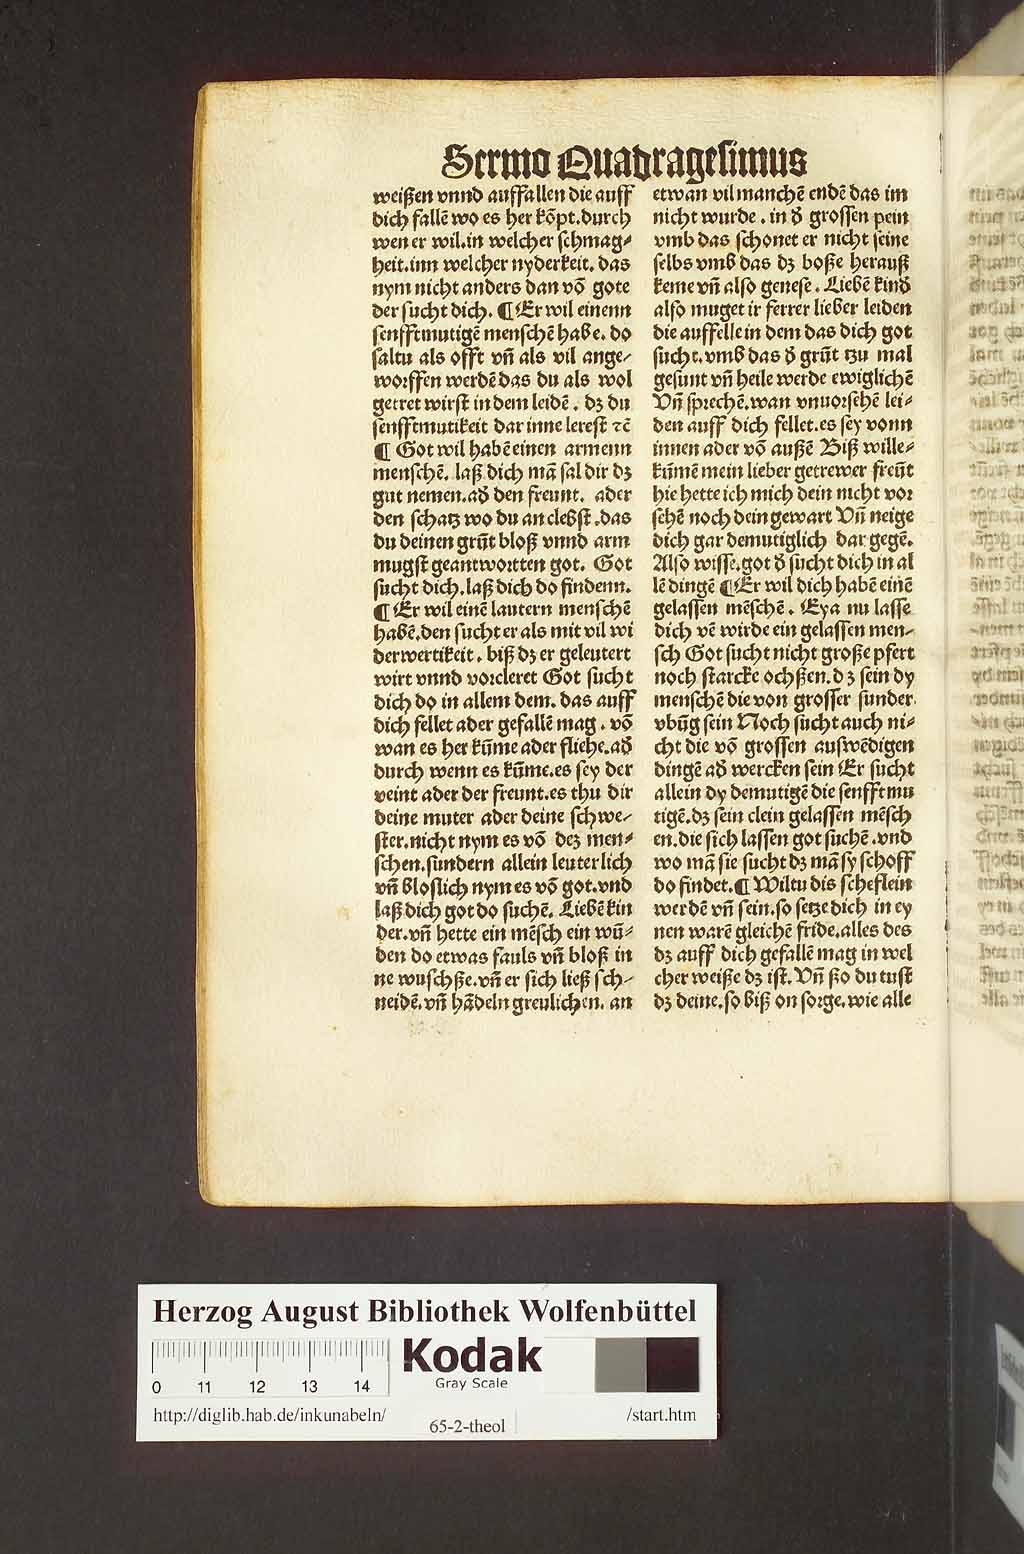 Sermo Quadragesimus
weißen vnnd auffallen die auff
dich fallē wo es her kōpt. durch
wen er wil. in welcher schmag⸗
heit. inn welcher nyderkeit. das
nym nicht anders dan vō gote
der sucht dich. ¶ Er wil einenn
senfftmutigē menschē habe. do
saltu als offt vn̄ als vil ange⸗
worffen werdē das du als wol
getret wirst in dem leidē. dz du
senfftmutikeit dar inne lerest ⁊c̄
¶ Got wil habē einen armenn
menschē. laß dich mā sal dir dz
gut nemen. ad̕ den freunt. ader
den schatz wo du an clebst. das
du deinen grūt bloß vnnd arm
mugst geantwortten got. Got
sucht dich. laß dich do findenn.
¶ Er wil einē lautern menschē
habē. den sucht er als mit vil wi
derwertikeit. biß dz er geleutert
wirt vnnd vorcleret Got sucht
dich do in allem dem. das auff
dich fellet aber gefallē mag. vō
wan es her kūme ader fliehe. ad̕
durch wenn es kūme. es sey der
veint ader der freunt. es thu dir
deine muter ader deine schwe⸗
ster. nicht nym es vō dez men⸗
schen. sundern allein leuterlich
vn̄ bloslich nym es vō got. vnd
laß dich got do suchē. Liebē kin
der. vn̄ hette ein mēsch ein wū⸗
den do etwas fauls vn̄ bloß in
ne wuschße. vn̄ er sich ließ sch⸗
neidē. vn̄ hādeln greulichen. an
etwan vil manchē endē das im
nicht wurde. in d̕ grossen pein
vmb das schonet er nicht seine
selbs vmb das dz boße herauß
keme vn̄ also genese. Liebē kind̕
also muget ir ferrer lieber leiden
die auffelle in dem das dich got
sucht. vmb das d̕ grūt tzu mal
gesunt vn̄ heile werde ewiglichē
Vn̄ sprechē. wan vnuorsehē lei⸗
den auff dich fellet. es sey vonn
innen ader vō außē Biß wille⸗
kūmē mein lieber getrewer freūt
hie hette ich mich dein nicht vor
sehē noch dein gewart Vn̄ neige
dich gar demutiglich dar gegē.
Also wisse. got d̕ sucht dich in al
lē dingē ¶ Er wil dich habē einē
gelassen mēschē. Eya nu lasse
dich vē wirde ein gelassen men⸗
sch Got sucht nicht große pfert
noch starcke ochßen. dz sein dy
menschē die von grosser sunder
vbūg sein Noch sucht auch ni⸗
cht die vō grossen auswēdigen
dingē ad̕ wercken sein Er sucht
allein dy demutigē die senfftmu
tigē. dz sein clein gelassen mēsch
en. die sich lassen got suchē. vnd
wo mā sie sucht dz mā sy schoff
do findet. ¶ Wiltu dis scheflein
werdē vn̄ sein. so setze dich in ey
nen warē gleichē fride. alles des
dz auff dich gefallē mag in wel
cher weiße dz ist. Vn̄ ßo du tust
dz deine. so biß on sorge. wie alle
Herzog August Bibliothek Wolfenbüttel
Kodak
Gray Scale
0 11 12 13 14
http://diglib.hab.de/inkunabeln/
65-2-theol
/start.htm